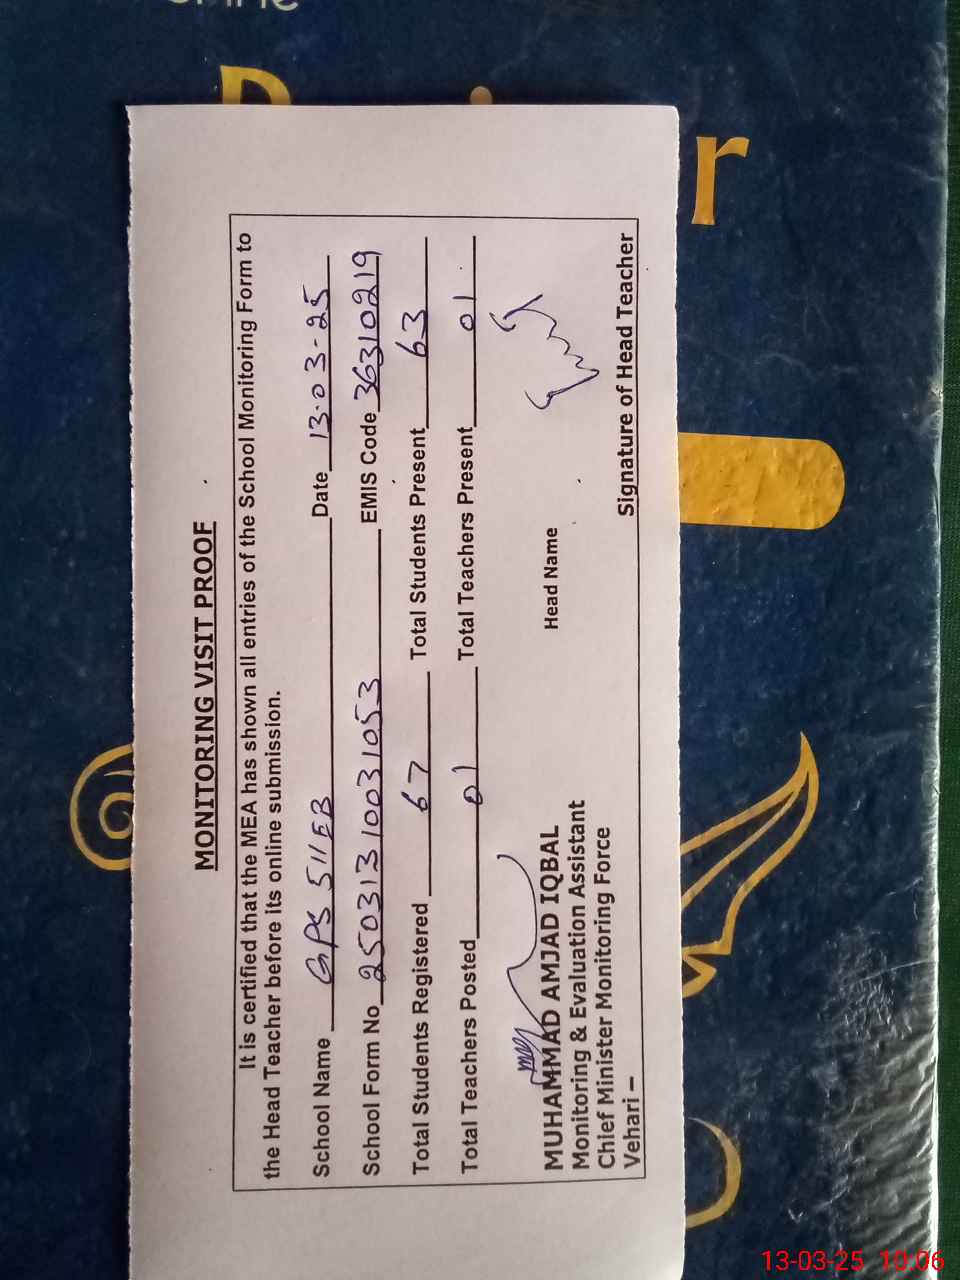 MONITORING VISIT PROOF
It is certified that the MEA has shown all entries of the School Monitoring Form to
the Head Teacher before its online submission.
School Name GPS 511EB Date 13-03-25
School Form No 25031310031053 EMIS Code 36310219
Total Students Registered 67 Total Students Present 63
Total Teachers Posted 01 Total Teachers Present 01
MUHAMMAD AMJAD IQBAL Head Name
Monitoring & Evaluation Assistant
Chief Minister Monitoring Force
Vehari – Signature of Head Teacher
13-03-25 10:06